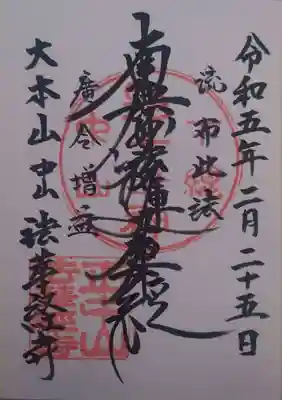 令和五年二月二十五日
流布此法
南無妙法蓮華経
廣令増益
大本山中山法華経寺